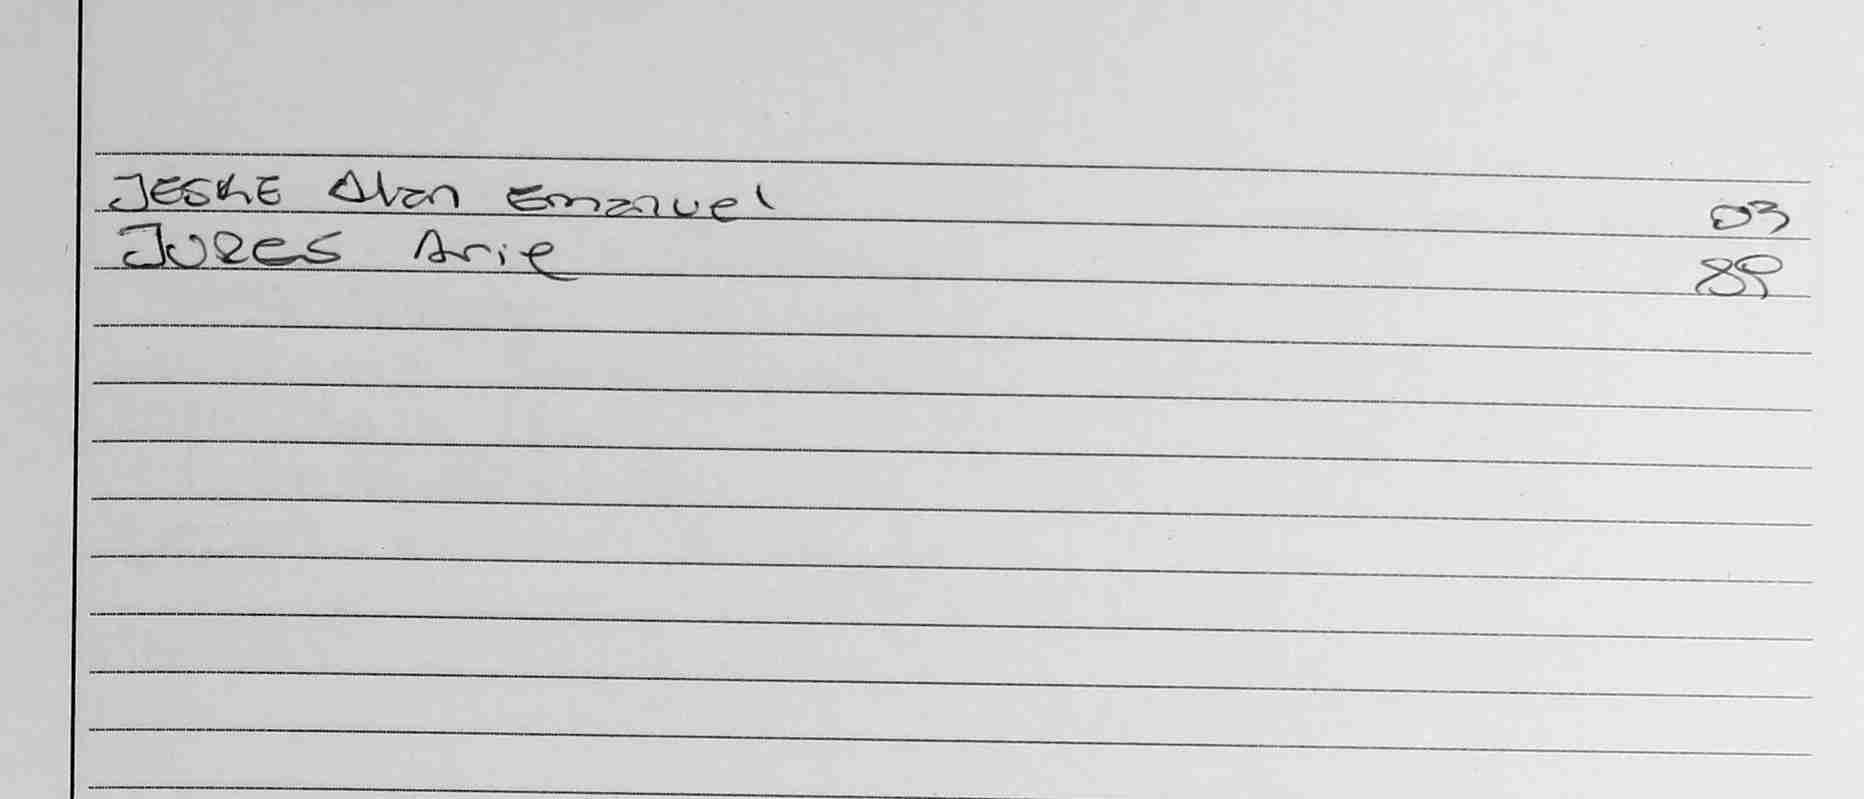 JESKE Alan Emanuel 03
JURES Arie 89